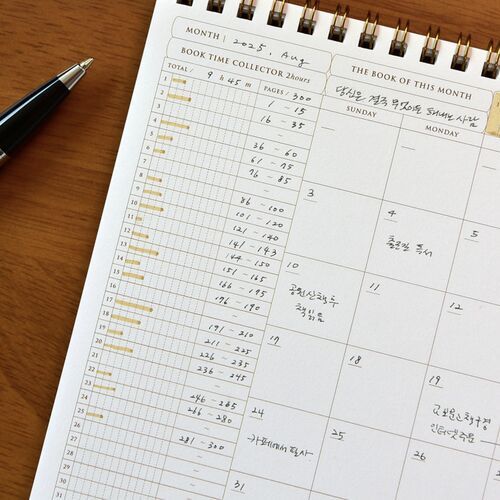 MONTH | 2025. Aug
BOOK TIME COLLECTOR 2hours
TOTAL / 9 h 45 m
PAGES / 300
1
1 - 15
2
16 - 35
3
—
4
36 - 60
5
61 - 75
6
76 - 85
7
—
8
86 - 100
9
101 - 120
10
121 - 140
11
141 - 143
12
144 - 150
13
151 - 165
14
166 - 195
15
196 - 190
16
—
17
191 - 210
18
211 - 225
19
226 - 235
20
236 - 245
21
—
22
246 - 265
23
266 - 280
24
—
25
281 - 300
26
—
27
—
28
—
29
30
31
THE BOOK OF THIS MONTH
당신은 결국 무엇이든 해내는 사람
SUNDAY MONDAY
— —
3 4 5
출근길 독서
10 11 12
공원 산책 후
책 읽음
17 18 19
교보문고 책구경
인터넷 주문
24 25 26
카페에서 필사
31